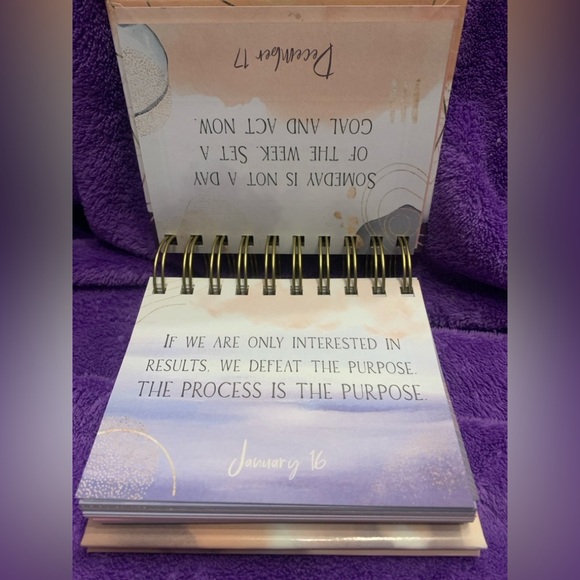 December 17
SOMEDAY IS NOT A DAY
OF THE WEEK. SET A
GOAL AND ACT NOW.
IF WE ARE ONLY INTERESTED IN
RESULTS, WE DEFEAT THE PURPOSE.
THE PROCESS IS THE PURPOSE.
January 16